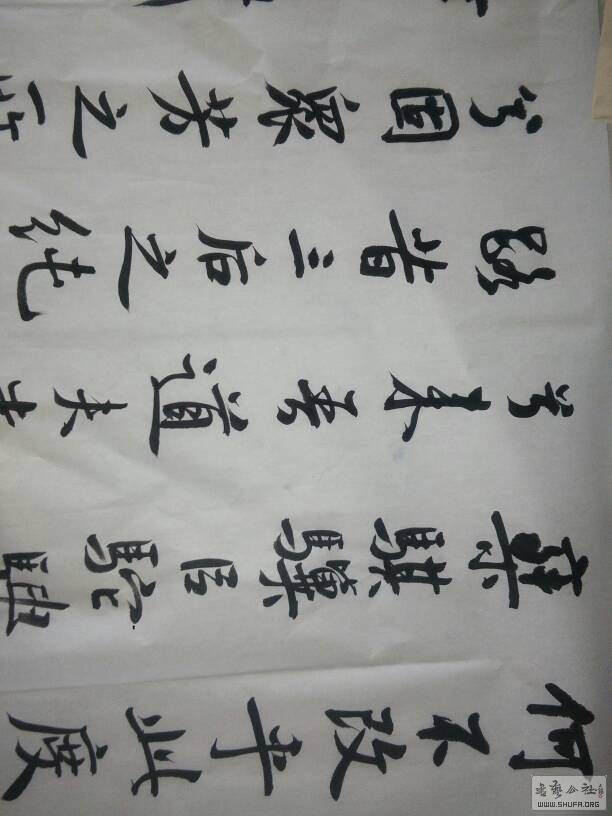 何不改乎此度
乘騏驥以馳騁
兮来吾道夫先
路昔三后之純
兮固衆芳之所
書藝公社
WWW.SHUFA.ORG